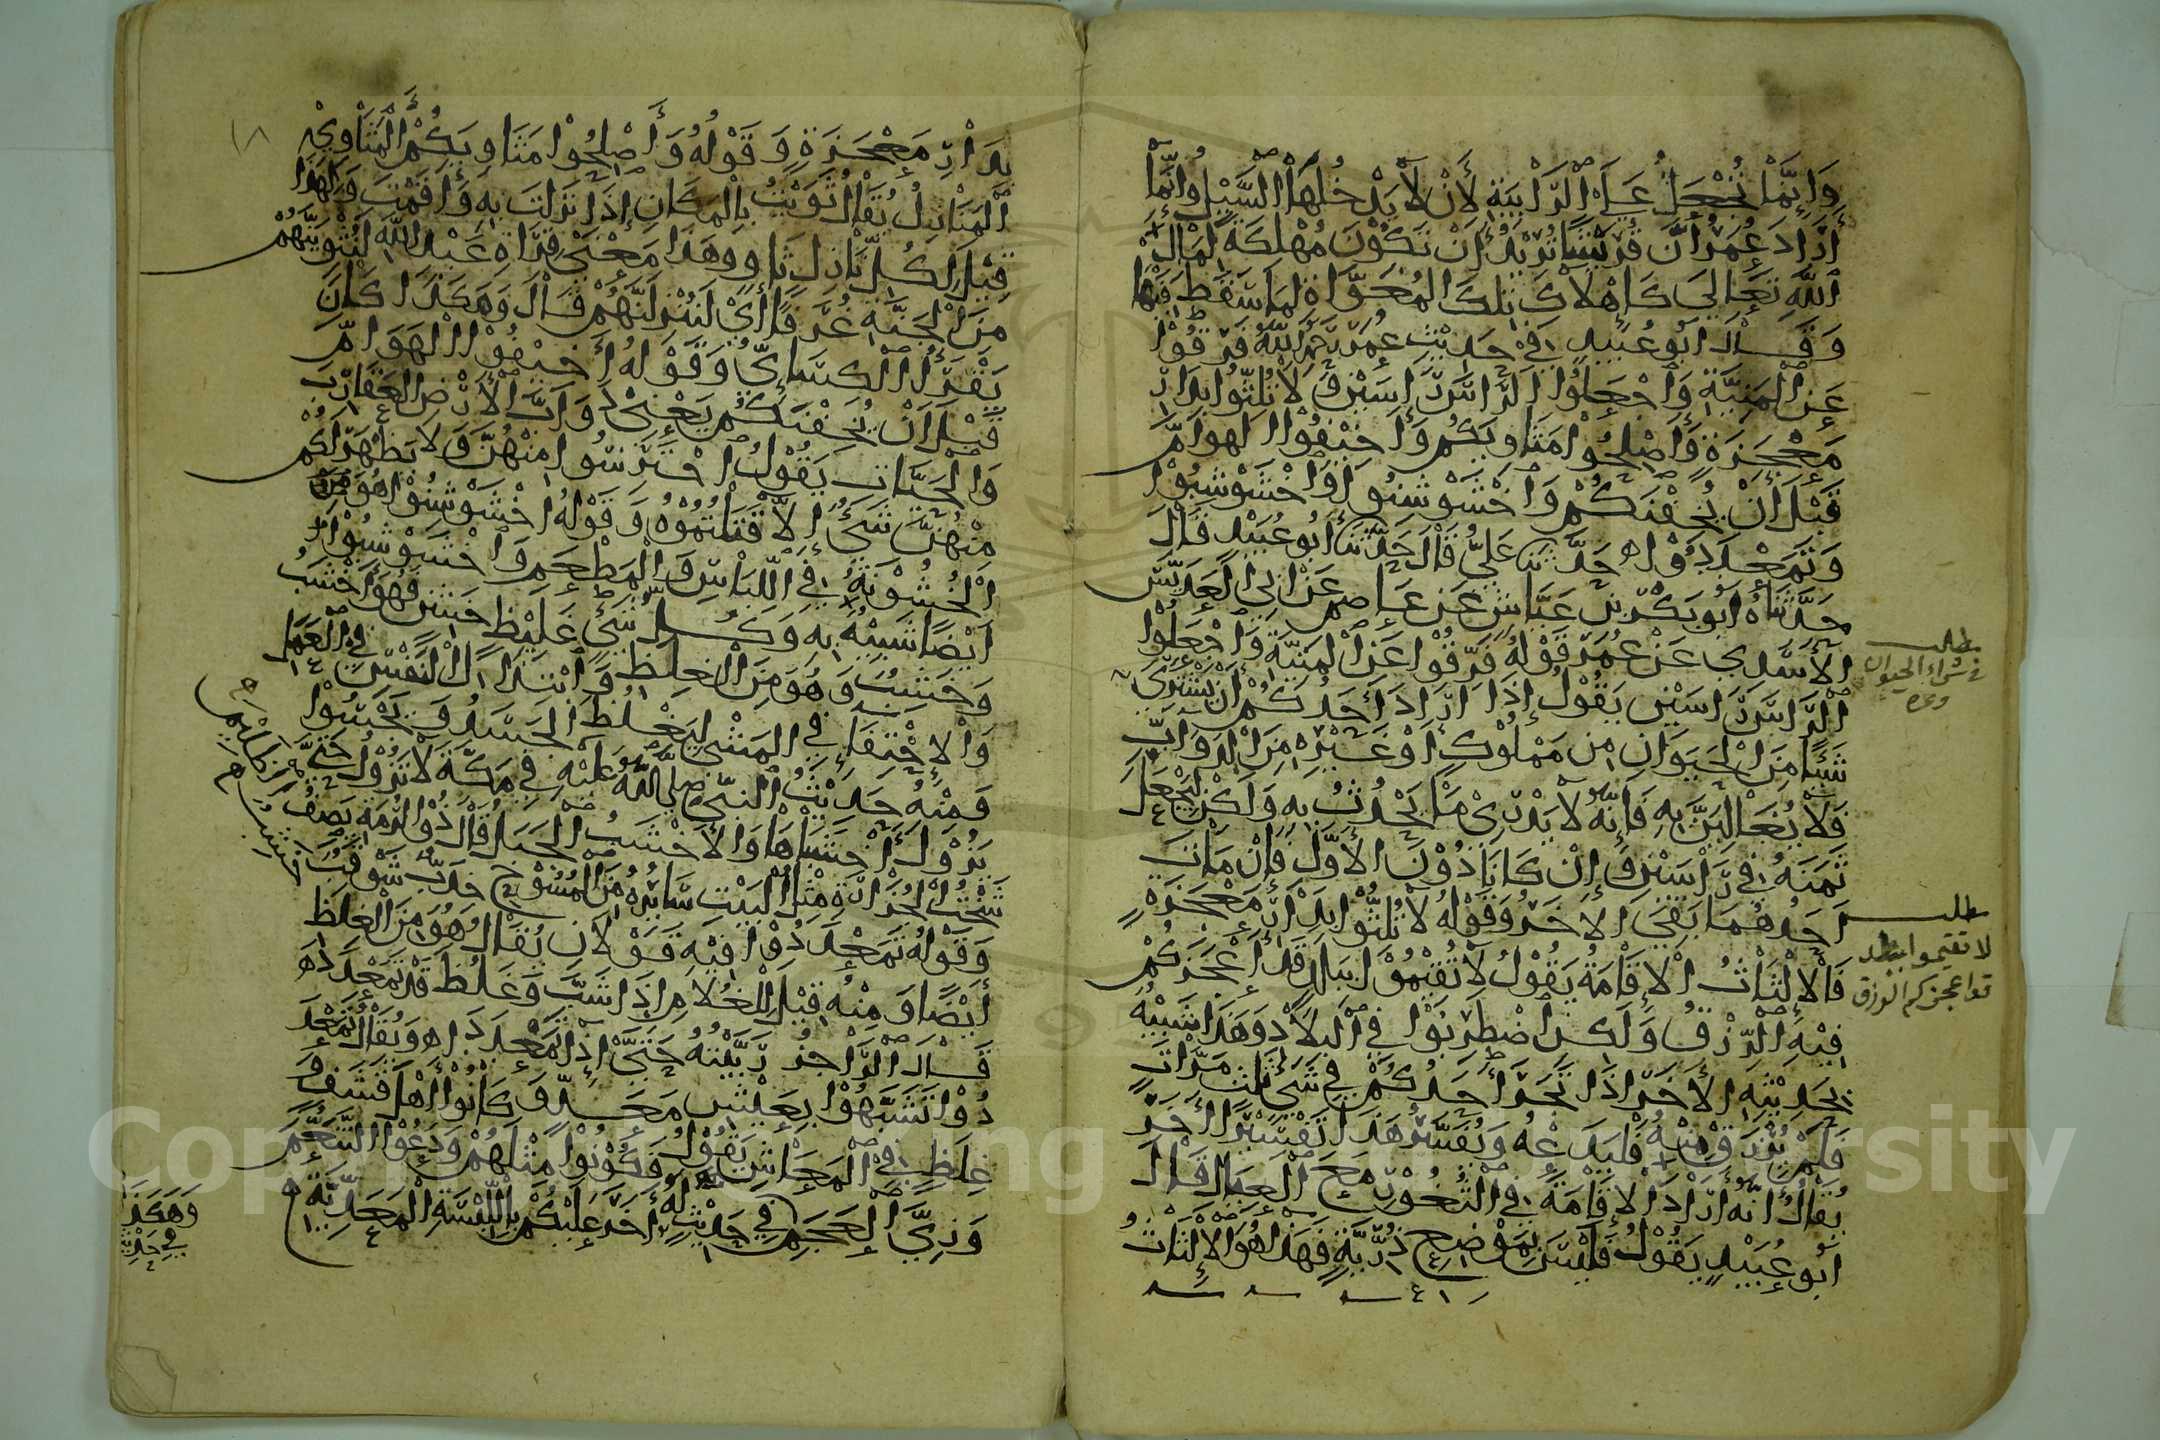 وَإِنَّمَا تُجْعَلُ عَلَى الرَّابِيَةِ لِأَنْ لَا يَدْخُلَهَا السَّيْلُ وَإِنَّمَا
أَرَادَ عُمَرُ أَنَّ قُرَيْشًا تُرِيْدُ أَنْ تَكُوْنَ مُهْلِكَةً لِمَالِ
اللّٰهِ تَعَالَى كَإِهْلَاكِ تِلْكَ الْمُغَوَّاةِ لِمَا سَقَطَ فِيْهَا
وَقَالَ أَبُو عُبَيْدٍ فِي حَدِيْثِ عُمَرَ رَحِمَهُ اللّٰهُ فَرِّقُوْا
عَنِ الْمَنِيَّةِ وَاجْعَلُوْا الرَّأْسَ رَأْسَيْنِ وَلَا تُلِثُّوْا بِدَارِ
مَعْجَزَةٍ وَأَصْلِحُوْا مَثَاوِيَكُمْ وَأَخِيْفُوْا الْهَوَامَّ
قَبْلَ أَنْ تُخِيْفَكُمْ وَاخْشَوْشِنُوْا وَاخْشَوْشِبُوْا
وَتَمَعْدَدُوْا ه حَدَّثَنَا عَلِيٌّ قَالَ حَدَّثَنَا أَبُو عُبَيْدٍ قَالَ
حَدَّثَنَاهُ أَبُو بَكْرِ بْنُ عَيَّاشٍ عَنْ عَاصِمٍ عَنْ أَبِي الْعَدَبَّسِ
الْأَسَدِيِّ عَنْ عُمَرَ قَوْلُهُ فَرِّقُوْا عَنِ الْمَنِيَّةِ وَاجْعَلُوْا
الرَّأْسَ رَأْسَيْنِ يَقُوْلُ إِذَا أَرَادَ أَحَدُكُمْ أَنْ يَشْتَرِيَ
شَيْئًا مِنَ الْحَيَوَانِ مِنْ مَمْلُوْكٍ أَوْ غَيْرِهِ مِنَ الدَّوَابِّ
فَلَا يُغَالِيَنَّ بِهِ فَإِنَّهُ لَا يَدْرِيْ مَا يَحْدُثُ بِهِ وَلَكِنْ لِيَجْعَلْ
ثَمَنَهُ فِي رَأْسَيْنِ وَإِنْ كَانَا دُوْنَ الْأَوَّلِ فَإِنْ مَاتَ
أَحَدُهُمَا بَقِيَ الْآخَرُ وَقَوْلُهُ لَا تُلِثُّوْا بِدَارِ مَعْجَزَةٍ
فَالْإِلْثَاثُ الْإِقَامَةُ يَقُوْلُ لَا تُقِيْمُوْا بِبَلَدٍ قَدْ أَعْجَزَكُمْ
فِيْهِ الرِّزْقُ وَلَكِنْ اضْطَرِبُوْا فِي الْبِلَادِ وَهَذَا شَبِيْهٌ
بِحَدِيْثِهِ الْآخَرِ إِذَا تَجَرَ أَحَدُكُمْ فِي شَيْءٍ ثَلٰثَ مَرَّاتٍ
فَلَمْ يُرْزَقْ مِنْهُ فَلْيَدَعْهُ وَيُفَسَّرُ هَذَا تَفْسِيْرًا آخَرَ
يُقَالُ إِنَّهُ أَرَادَ الْإِقَامَةَ فِي الثُّغُوْرِ مَعَ الْعِيَالِ قَالَ
أَبُو عُبَيْدٍ يَقُوْلُ فَلَيْسَ بِمَوْضِعِ ذُرِّيَّةٍ فَهَذَا هُوَ الْإِلْثَاثُ
مطلب
في شراء الحيوان
وغيره
مطلب
لا تقيموا ببلد
قد اعجزكم الرزق
١٨
بِدَارِ مَعْجَزَةٍ وَقَوْلُهُ وَأَصْلِحُوْا مَثَاوِيَكُمْ الْمَثَاوِيْ
الْمَنَازِلُ يُقَالُ ثَوَيْتُ بِالْمَكَانِ إِذَا نَزَلْتَ بِهِ وَأَقَمْتَ وَلِهَذَا
قِيْلَ لِكُلِّ نَازِلٍ ثَاوٍ وَهَذَا مَعْنَى قِرَاءَةِ عَبْدِ اللّٰهِ لَنُثْوِيَنَّهُمْ
مِنَ الْجَنَّةِ غُرَفًا أَيْ لَنُنْزِلَنَّهُمْ قَالَ وَهَكَذَا كَانَ
يَقْرَأُ الْكِسَائِيُّ وَقَوْلُهُ أَخِيْفُوْا الْهَوَامَّ
قَبْلَ أَنْ تُخِيْفَكُمْ يَعْنِيْ دَوَابَّ الْأَرْضِ الْعَقَارِبَ
وَالْحَيَّاتِ يَقُوْلُ احْتَرِسُوا مِنْهُنَّ وَلَا يَظْهَرْ لَكُمْ
مِنْهُنَّ شَيْءٌ إِلَّا قَتَلْتُمُوْهُ وَقَوْلُهُ اخْشَوْشِنُوْا هُوَ مِنَ
الْخُشُوْنَةِ فِي اللِّبَاسِ وَالْمَطْعَمِ وَاخْشَوْشِبُوْا
أَيْضًا شَبِيْهٌ بِهِ وَكُلُّ شَيْءٍ غَلِيْظٍ خَشِنٍ فَهُوَ أَخْشَبُ
وَخَشِبٌ وَهُوَ مِنَ الْغِلَظِ وَابْتِذَالِ النَّفْسِ فِي الْعَمَلِ
وَالْاِحْتِفَاءِ فِي الْمَشْيِ لِيَغْلُظَ الْجَسَدُ وَيَجْسُوْا
وَمِنْهُ حَدِيْثُ النَّبِيِّ صَلَّى اللّٰهُ عَلَيْهِ فِي مَكَّةَ لَا تَزُوْلُ حَتَّى
يَزُوْلَ أَخْشَبَاهَا وَالْأَخْشَبُ الْجَبَلُ قَالَ ذُوْ الرُّمَّةِ يَصِفُ
شَخْتُ الْجُزَارَةِ مِثْلُ الْبَيْتِ سَائِرُهُ مِنَ الْمُسُوْحِ خِدَبٌّ شَوْقَبٌ خَشِبُ
وَقَوْلُهُ تَمَعْدَدُوْا فِيْهِ قَوْلَانِ يُقَالُ هُوَ مِنَ الْغِلَظِ
أَيْضًا وَمِنْهُ قِيْلَ لِلْغُلَامِ إِذَا شَبَّ وَغَلُظَ قَدْ تَمَعْدَدَ ه
قَالَ الرَّاجِزُ رَبَّيْتُهُ حَتَّى إِذَا تَمَعْدَدَا ه وَيُقَالُ تَمَعْدَ
دُوْا تَشَبَّهُوْا بِعَيْشِ مَعَدٍّ وَكَانُوْا أَهْلَ قَشَفٍ وَ
غِلَظٍ فِي الْمَعَاشِ يَقُوْلُ فَكُوْنُوْا مِثْلَهُمْ وَدَعُوْا التَّنَعُّمَ
وَزِيَّ الْعَجَمِ فِي حَدِيْثٍ لَهُ آخَرَ عَلَيْكُمْ بِاللِّبْسَةِ الْمَعَدِّيَّةِ
وَهَكَذَا
فِي حَدِيْثٍ